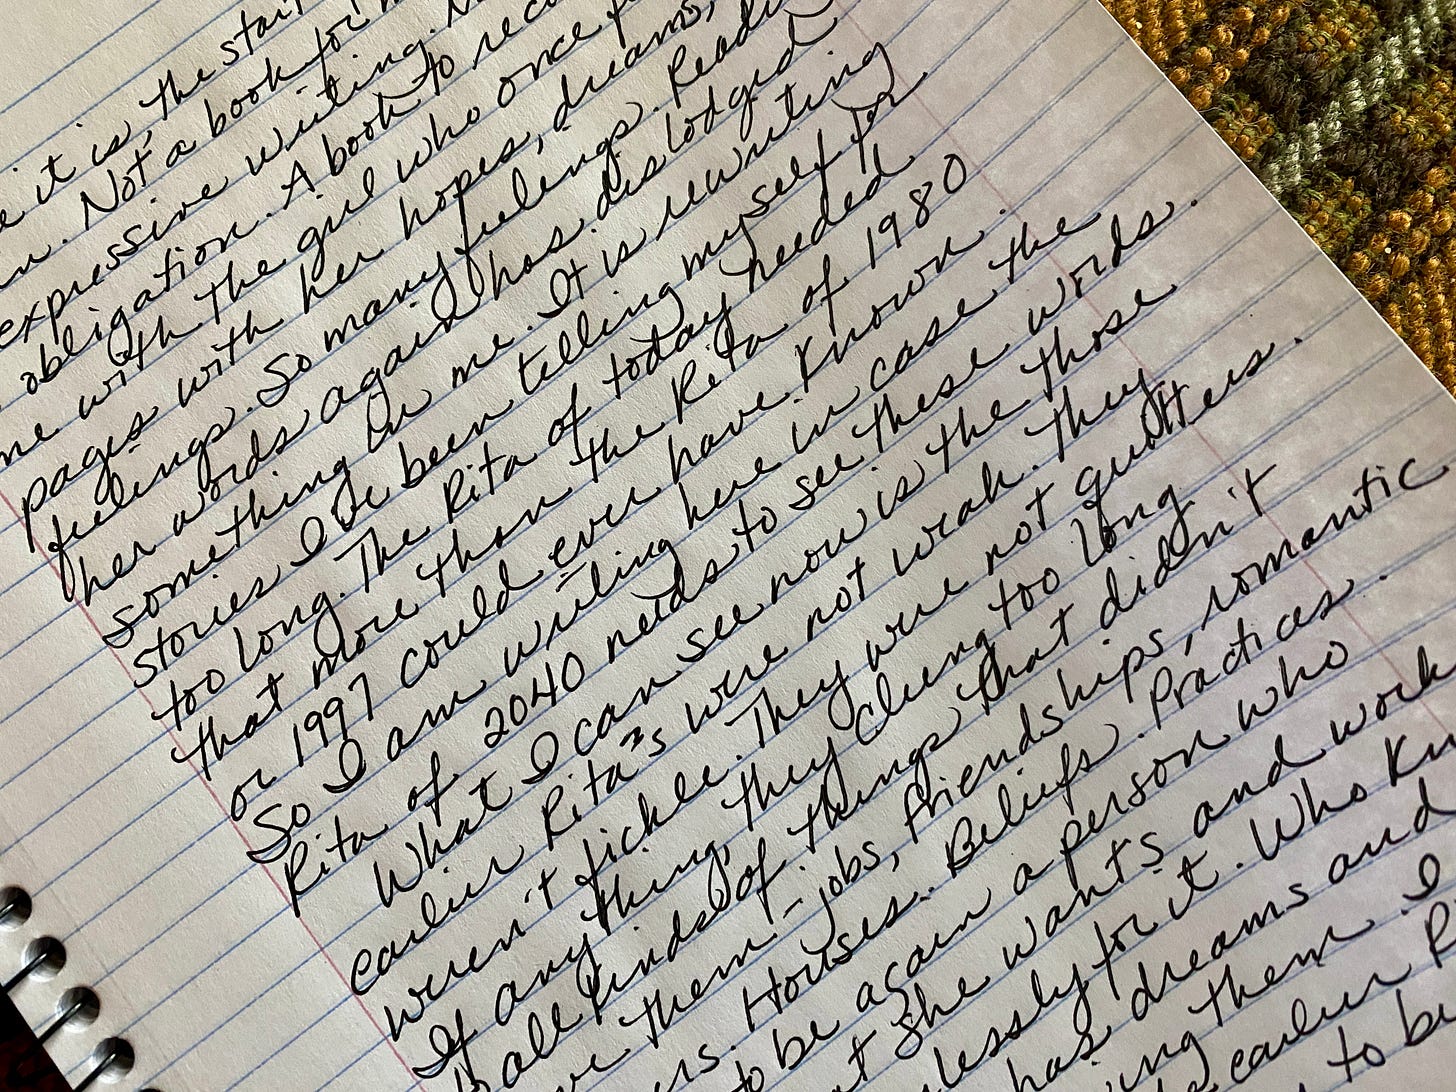 it is, the star
Not a book for
expressive writing.
obligation. A book to rec
me with the girl who once
pages with her hopes, dreams,
feelings. So many feelings. Readin
her words again has dislodged
something in me. It is rewriting
stories I've been telling myself for
too long. The Rita of today needed
that more than the Rita of 1980
or 1997 could ever have known.
So I am writing here in case the
Rita of 2040 needs to see these words.
What I can see now is the those
earlier Rita's were not weak. They
weren't fickle. They were not quitters.
If anything, they clung too long
to all kinds of things that didn't
them - jobs, friendships, romantic
ers. Houses. Beliefs. Practices.
to be again a person who
t she wants and work
lessly for it. Who kn
has dreams and
ing them. I
earlier R
to be